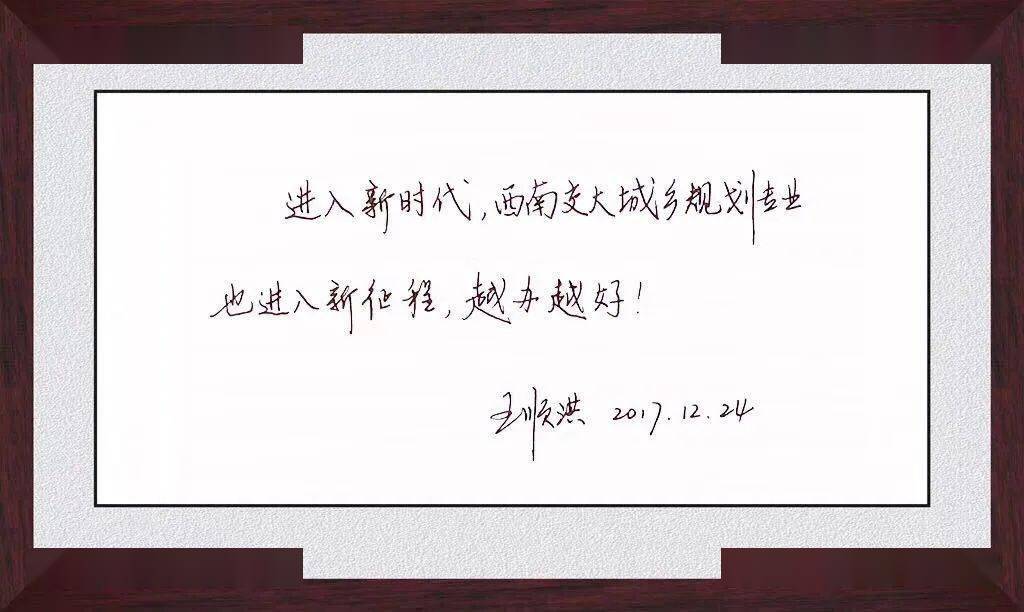 进入新时代,西南交大城乡规划专业
也进入新征程,越办越好!
王顺洪 2017.12.24